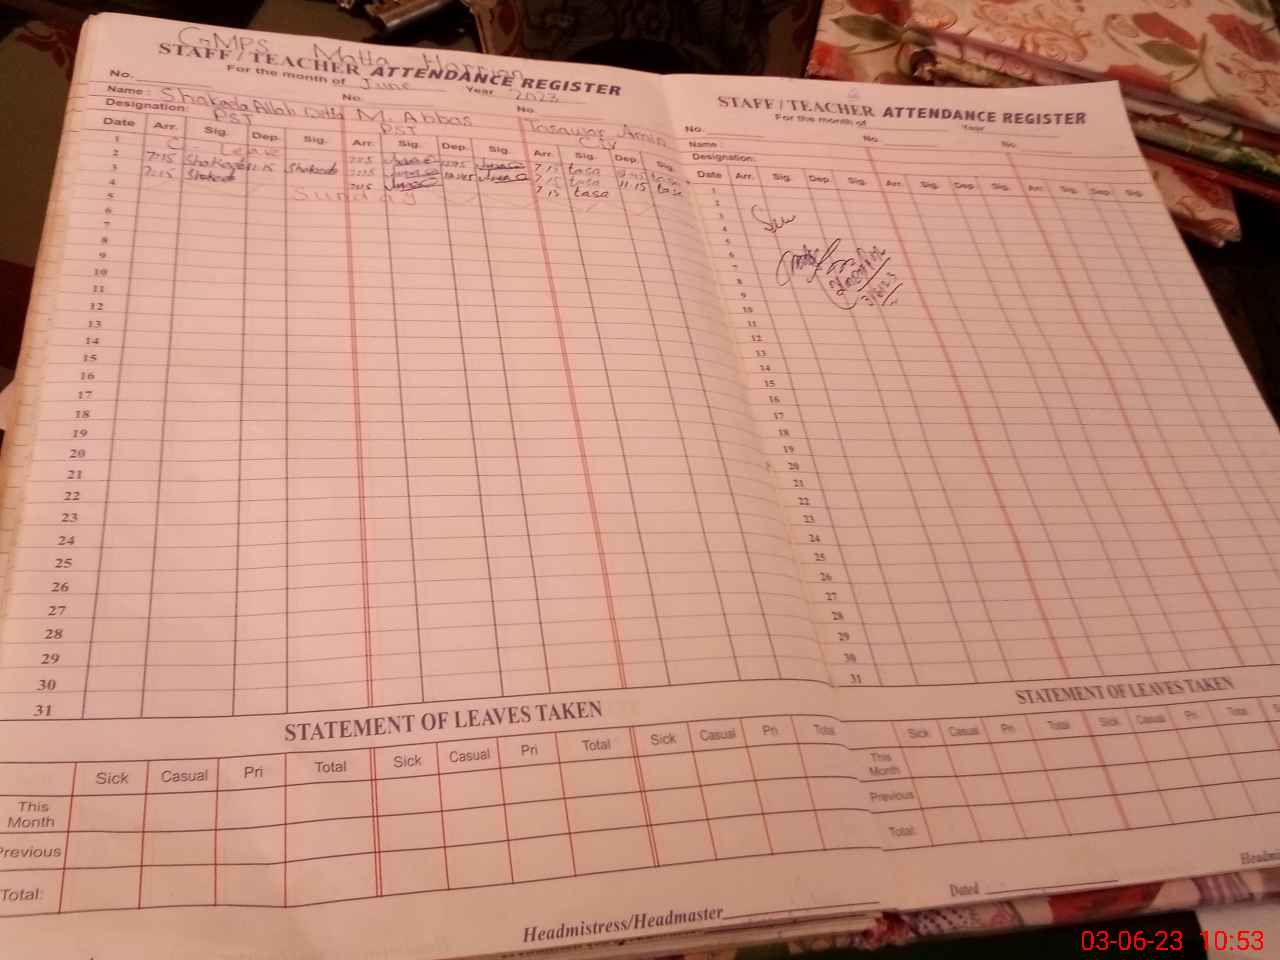 GMPS Motha
STAFF / TEACHER ATTENDANCE REGISTER
For the month of June Year 2023
No. No. No.
Name : Shakeda Allah Ditta M. Abbas Tasawar Amin
Designation: PST PST
Date Arr. Sig. Dep. Sig. Arr. Sig. Dep. Sig. Arr. Sig. Dep. Sig.
1 C. Leave
2 7:15 Shakeda 11:15 Shakeda 7:15 tasa
3 7:15 Shakeda 7:15 tasa 11:15 tasa
4 Sunday 7:15 tasa
5
6
7
8
9
10
11
12
13
14
15
16
17
18
19
20
21
22
23
24
25
26
27
28
29
30
31
STATEMENT OF LEAVES TAKEN
Sick Casual Pri Total Sick Casual Pri Total Sick Casual Pri Total
This Month
Previous
Total:
Headmistress/Headmaster
STAFF / TEACHER ATTENDANCE REGISTER
For the month of Year
No. No. No.
Name :
Designation:
Date Arr. Sig. Dep. Sig. Arr. Sig. Dep. Sig. Arr. Sig. Dep. Sig.
1
2
3
4
5
6
7
8
9
10
11
12
13
14
15
16
17
18
19
20
21
22
23
24
25
26
27
28
29
30
31
3/6/23
STATEMENT OF LEAVES TAKEN
Sick Casual Pri Total Sick Casual Pri Total S
This Month
Previous
Total:
Headmi
Dated
03-06-23 10:53